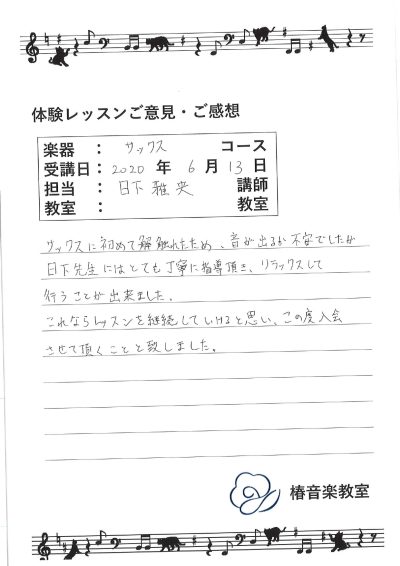 体験レッスンご意見・ご感想
楽器 : サックス コース
受講日: 2020 年 6 月 13 日
担当 : 日下 雅央 講師
教室 : 教室
サックスに初めて触れたため、音が出るか不安でしたが
日下先生にはとても丁寧に指導頂き、リラックスして
行うことが出来ました。
これならレッスンを継続していけると思い、この度入会
させて頂くことと致しました。
椿音楽教室